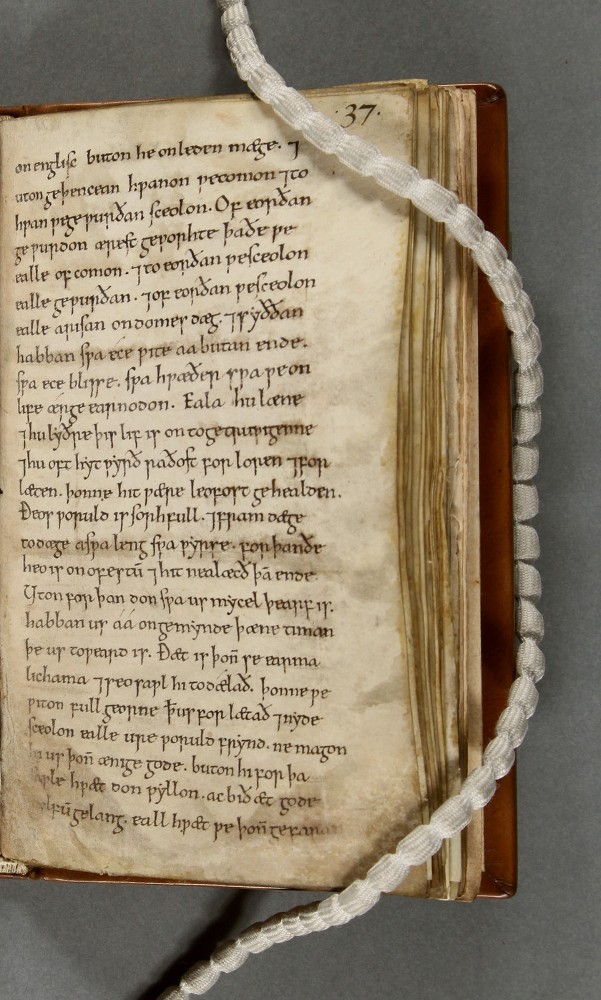 37.
on englisc buton he on leden mæge. ⁊
uton geþencean hƿanon ƿe comon ⁊ to
hƿan ƿe geƿurðan sceolon. Of eorðan
ge ƿurdon ærest geƿorhte þa ðe ƿe
ealle of comon. ⁊ to eorðan ƿe sceolon
ealle geƿurðan. ⁊ of eorðan ƿe sceolon
ealle arisan on domes dæg. ⁊ syððan
habban sƿa ece ƿite aa butan ende.
sƿa ece blisse. sƿa hƿæðer sƿa ƿe on
life ærge earnodon. Eala hu læne
⁊ hu lyðre þis lif is on to getruƿigenne
⁊ hu oft hyt ƿyrð raðost for loren ⁊ for
læten. þonne hit ƿære leofost gehealden.
Ðeos ƿoruld is sorhfull. ⁊ fram dæge
to dæge a sƿa leng sƿa ƿyrse. for þan ðe
heo is on ofestū ⁊ hit nealæcð þā ende
Uton for þan don sƿa us mycel þearf is.
habban us áá on gemynde þæne timan
þe us toƿeard is. Ðæt is þoñ se earma
lichama ⁊ seo saƿl hi todælað. þonne ƿe
ƿiton full georne ꝥ us for lætað ⁊ nyde
sceolon ealle ure ƿoruld frynd. ne magon
us þoñ ænige gode. buton hi for þa
hƿæt don ƿyllon. ac bið æt gode
gelang. eall hƿæt ƿe þoñ